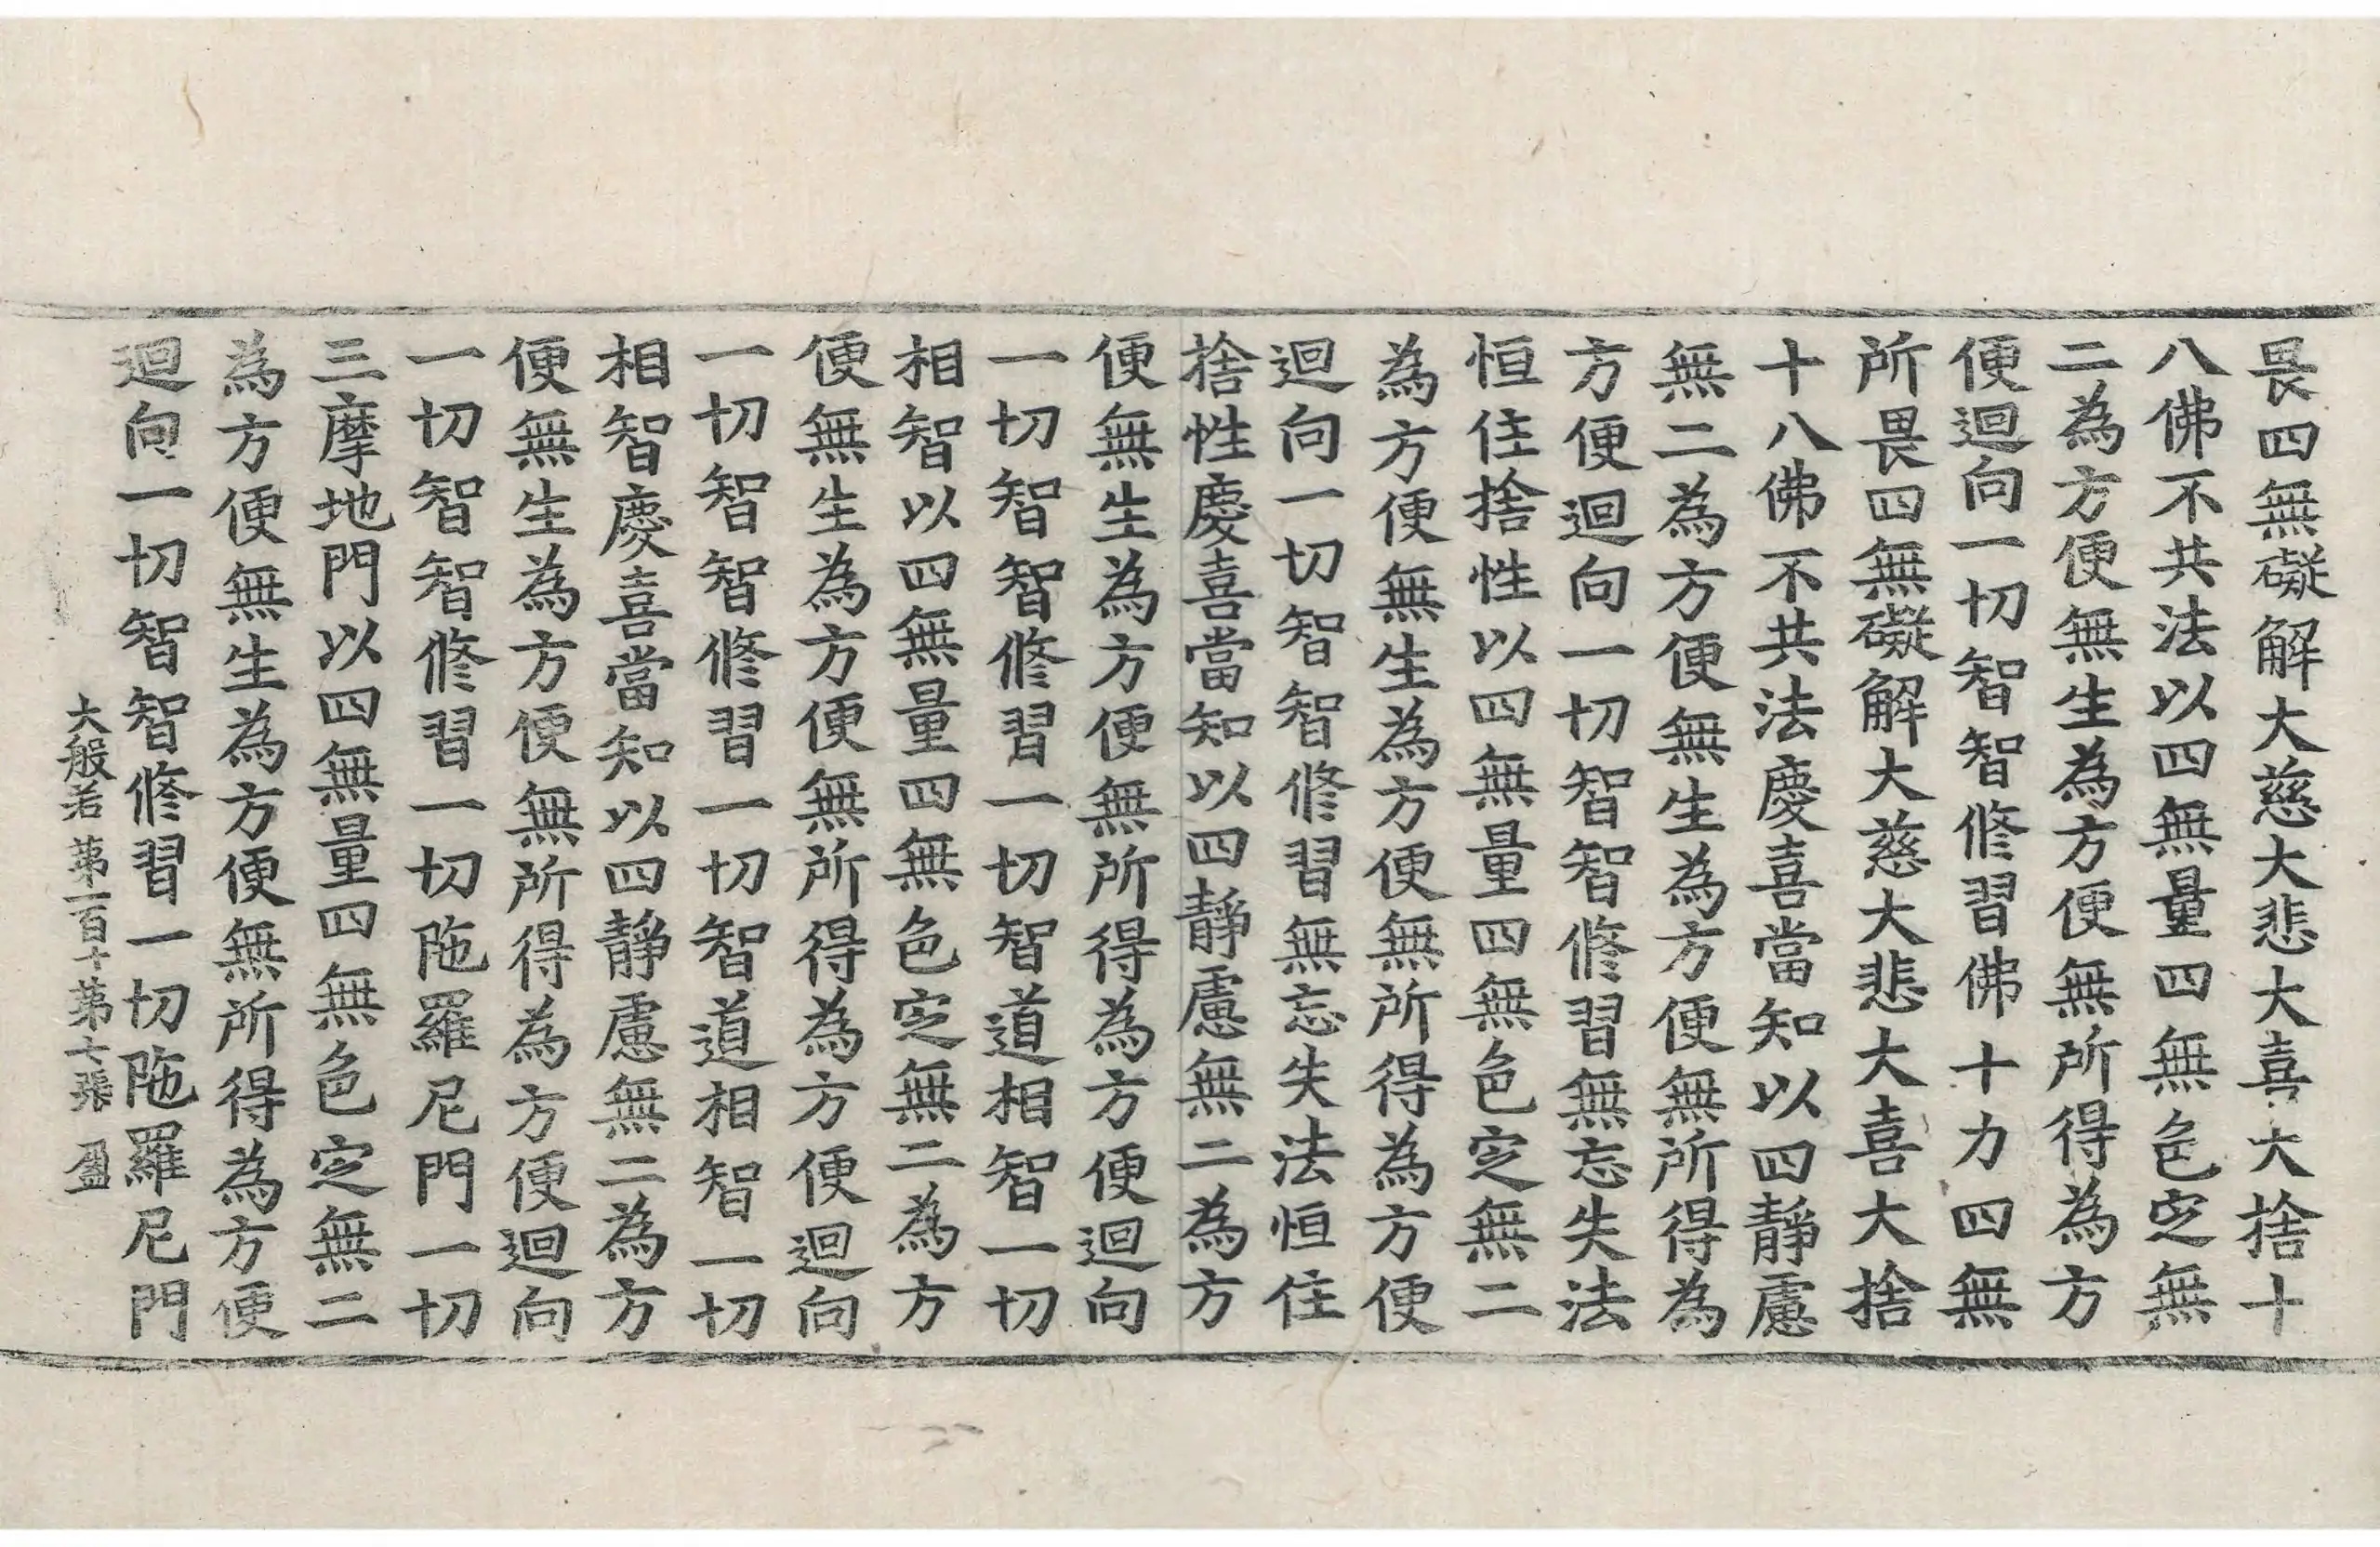 畏四無礙解大慈大悲大喜大捨十
八佛不共法以四無量四無色定無
二為方便無生為方便無所得為方
便迴向一切智智修習佛十力四無
所畏四無礙解大慈大悲大喜大捨
十八佛不共法慶喜當知以四靜慮
無二為方便無生為方便無所得為
方便迴向一切智智修習無忘失法
恒住捨性以四無量四無色定無二
為方便無生為方便無所得為方便
迴向一切智智修習無忘失法恒住
捨性慶喜當知以四靜慮無二為方
便無生為方便無所得為方便迴向
一切智智修習一切智道相智一切
相智以四無量四無色定無二為方
便無生為方便無所得為方便迴向
一切智智修習一切智道相智一切
相智慶喜當知以四靜慮無二為方
便無生為方便無所得為方便迴向
一切智智修習一切陁羅尼門一切
三摩地門以四無量四無色定無二
為方便無生為方便無所得為方便
迴向一切智智修習一切陁羅尼門
大般若 第一百十第七張 盈